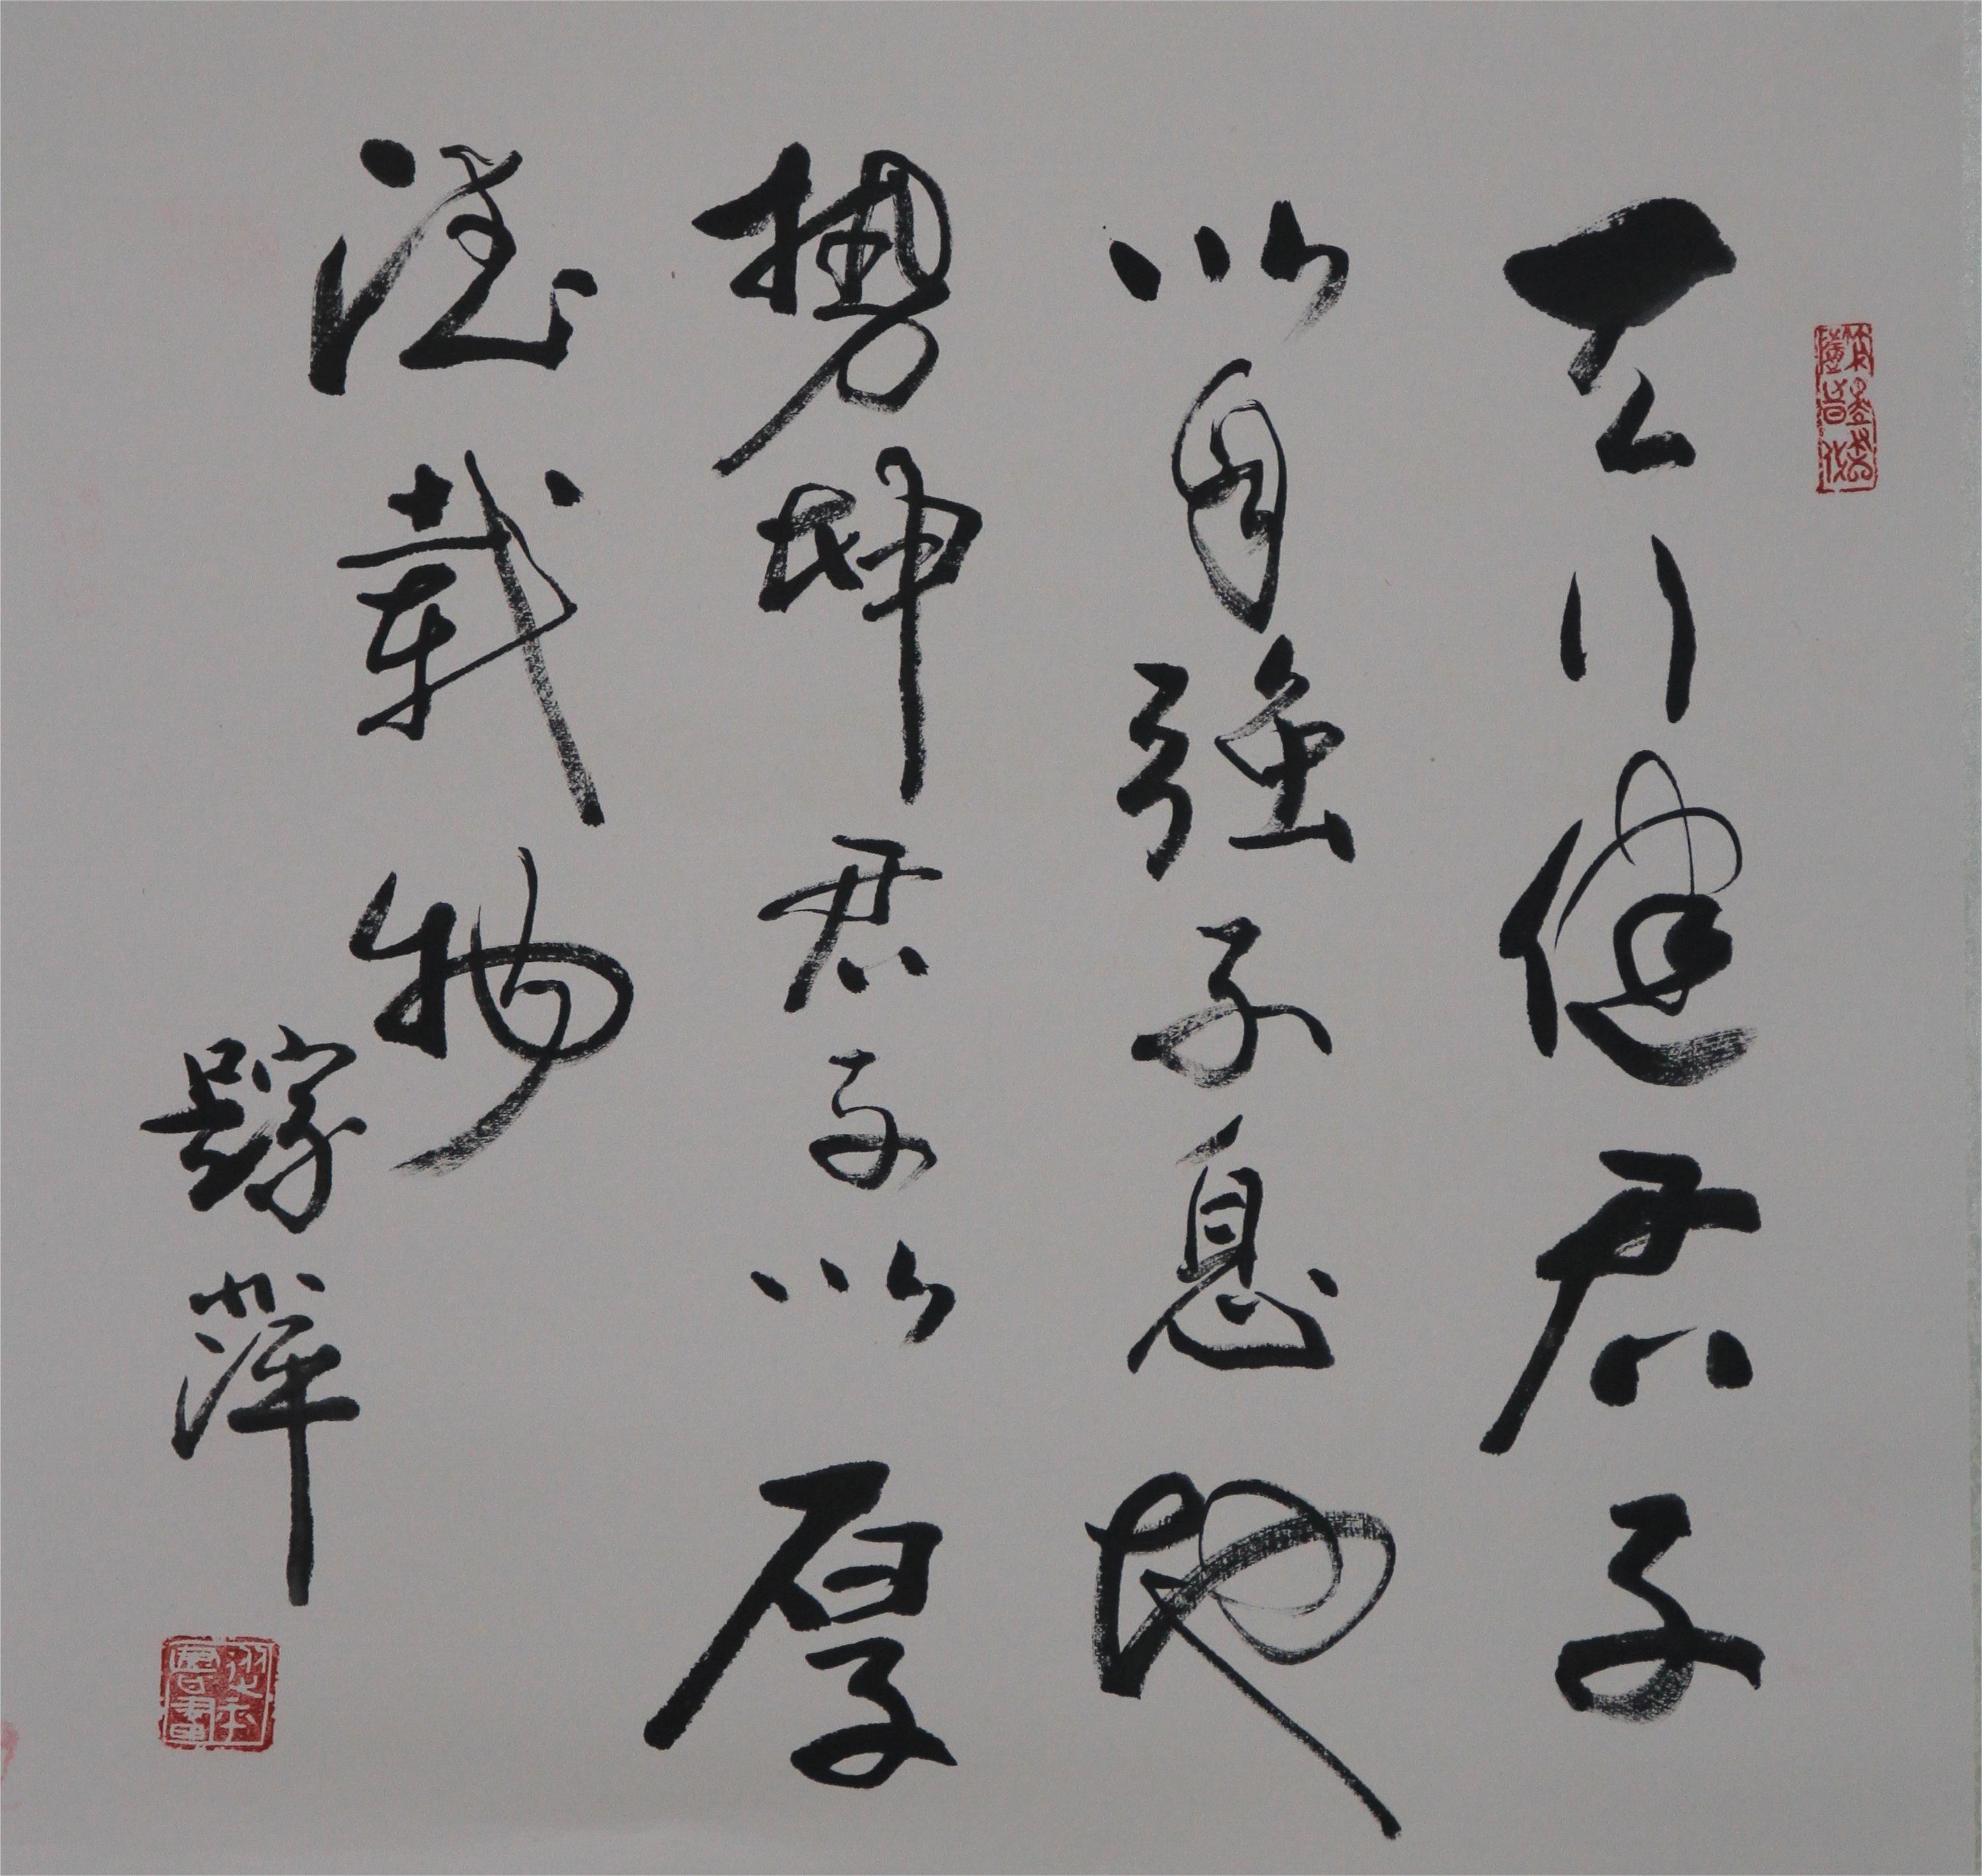 天行健君子
以自強不息地
勢坤君子以厚
德載物